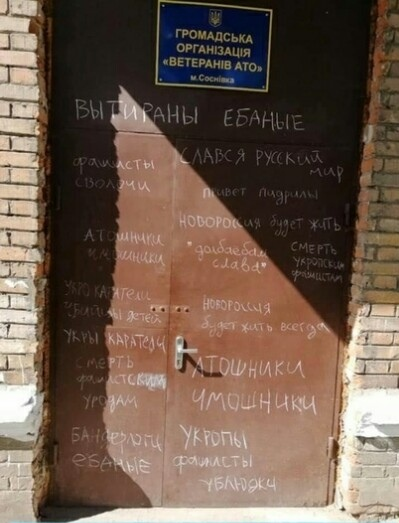 ГРОМАДСЬКА
ОРГАНІЗАЦІЯ
«ВЕТЕРАНІВ АТО»
м.Соснівка
ВЫТИРАНЫ ЕБАНЫЕ
фашисты
сволочи
АТОШНИКИ
чмошники
УКРО КАРАТЕЛИ
убийцы детей
УКРЫ КАРАТЕЛИ
СМЕРТЬ
фашистским
уродам
БАНДЕРЛОГИ
ебаные
СЛАВСЯ РУССКИЙ
МИР
привет пидрилы
НОВОРОССИЯ будет жить
"долбаебам
слава"
СМЕРТЬ
укропским
фашистам
НОВОРОССИЯ
будет жить всегда
АТОШНИКИ
ЧМОШНИКИ
УКРОПЫ
фашисты
УБЛЮДКИ